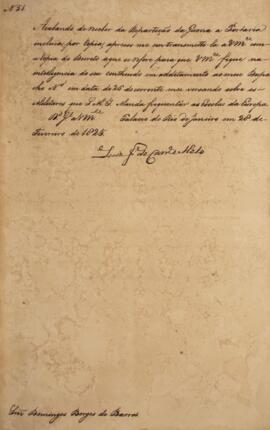 N.º 31
Acabando de receber da Repartição da Guerra a Portaria
inclusa, por copia, apresso me em transmettil-a a VM.ce com
a copia do Decreto a que se refere para que VM.ce fique na
intelligencia do seu contheudo em additamento ao meu Despa-
cho N.º em data de 26 do corrente mez versando sobre os
Militares que S. M. I. Manda frequentar as Escolas da Europa
D.s G.e a VM.ce Palacio do Rio de Janeiro em 28 de
Fevereiro de 1825.
Luiz J.e de Carv.o e Mello
Snr Domingos Borges de Barros